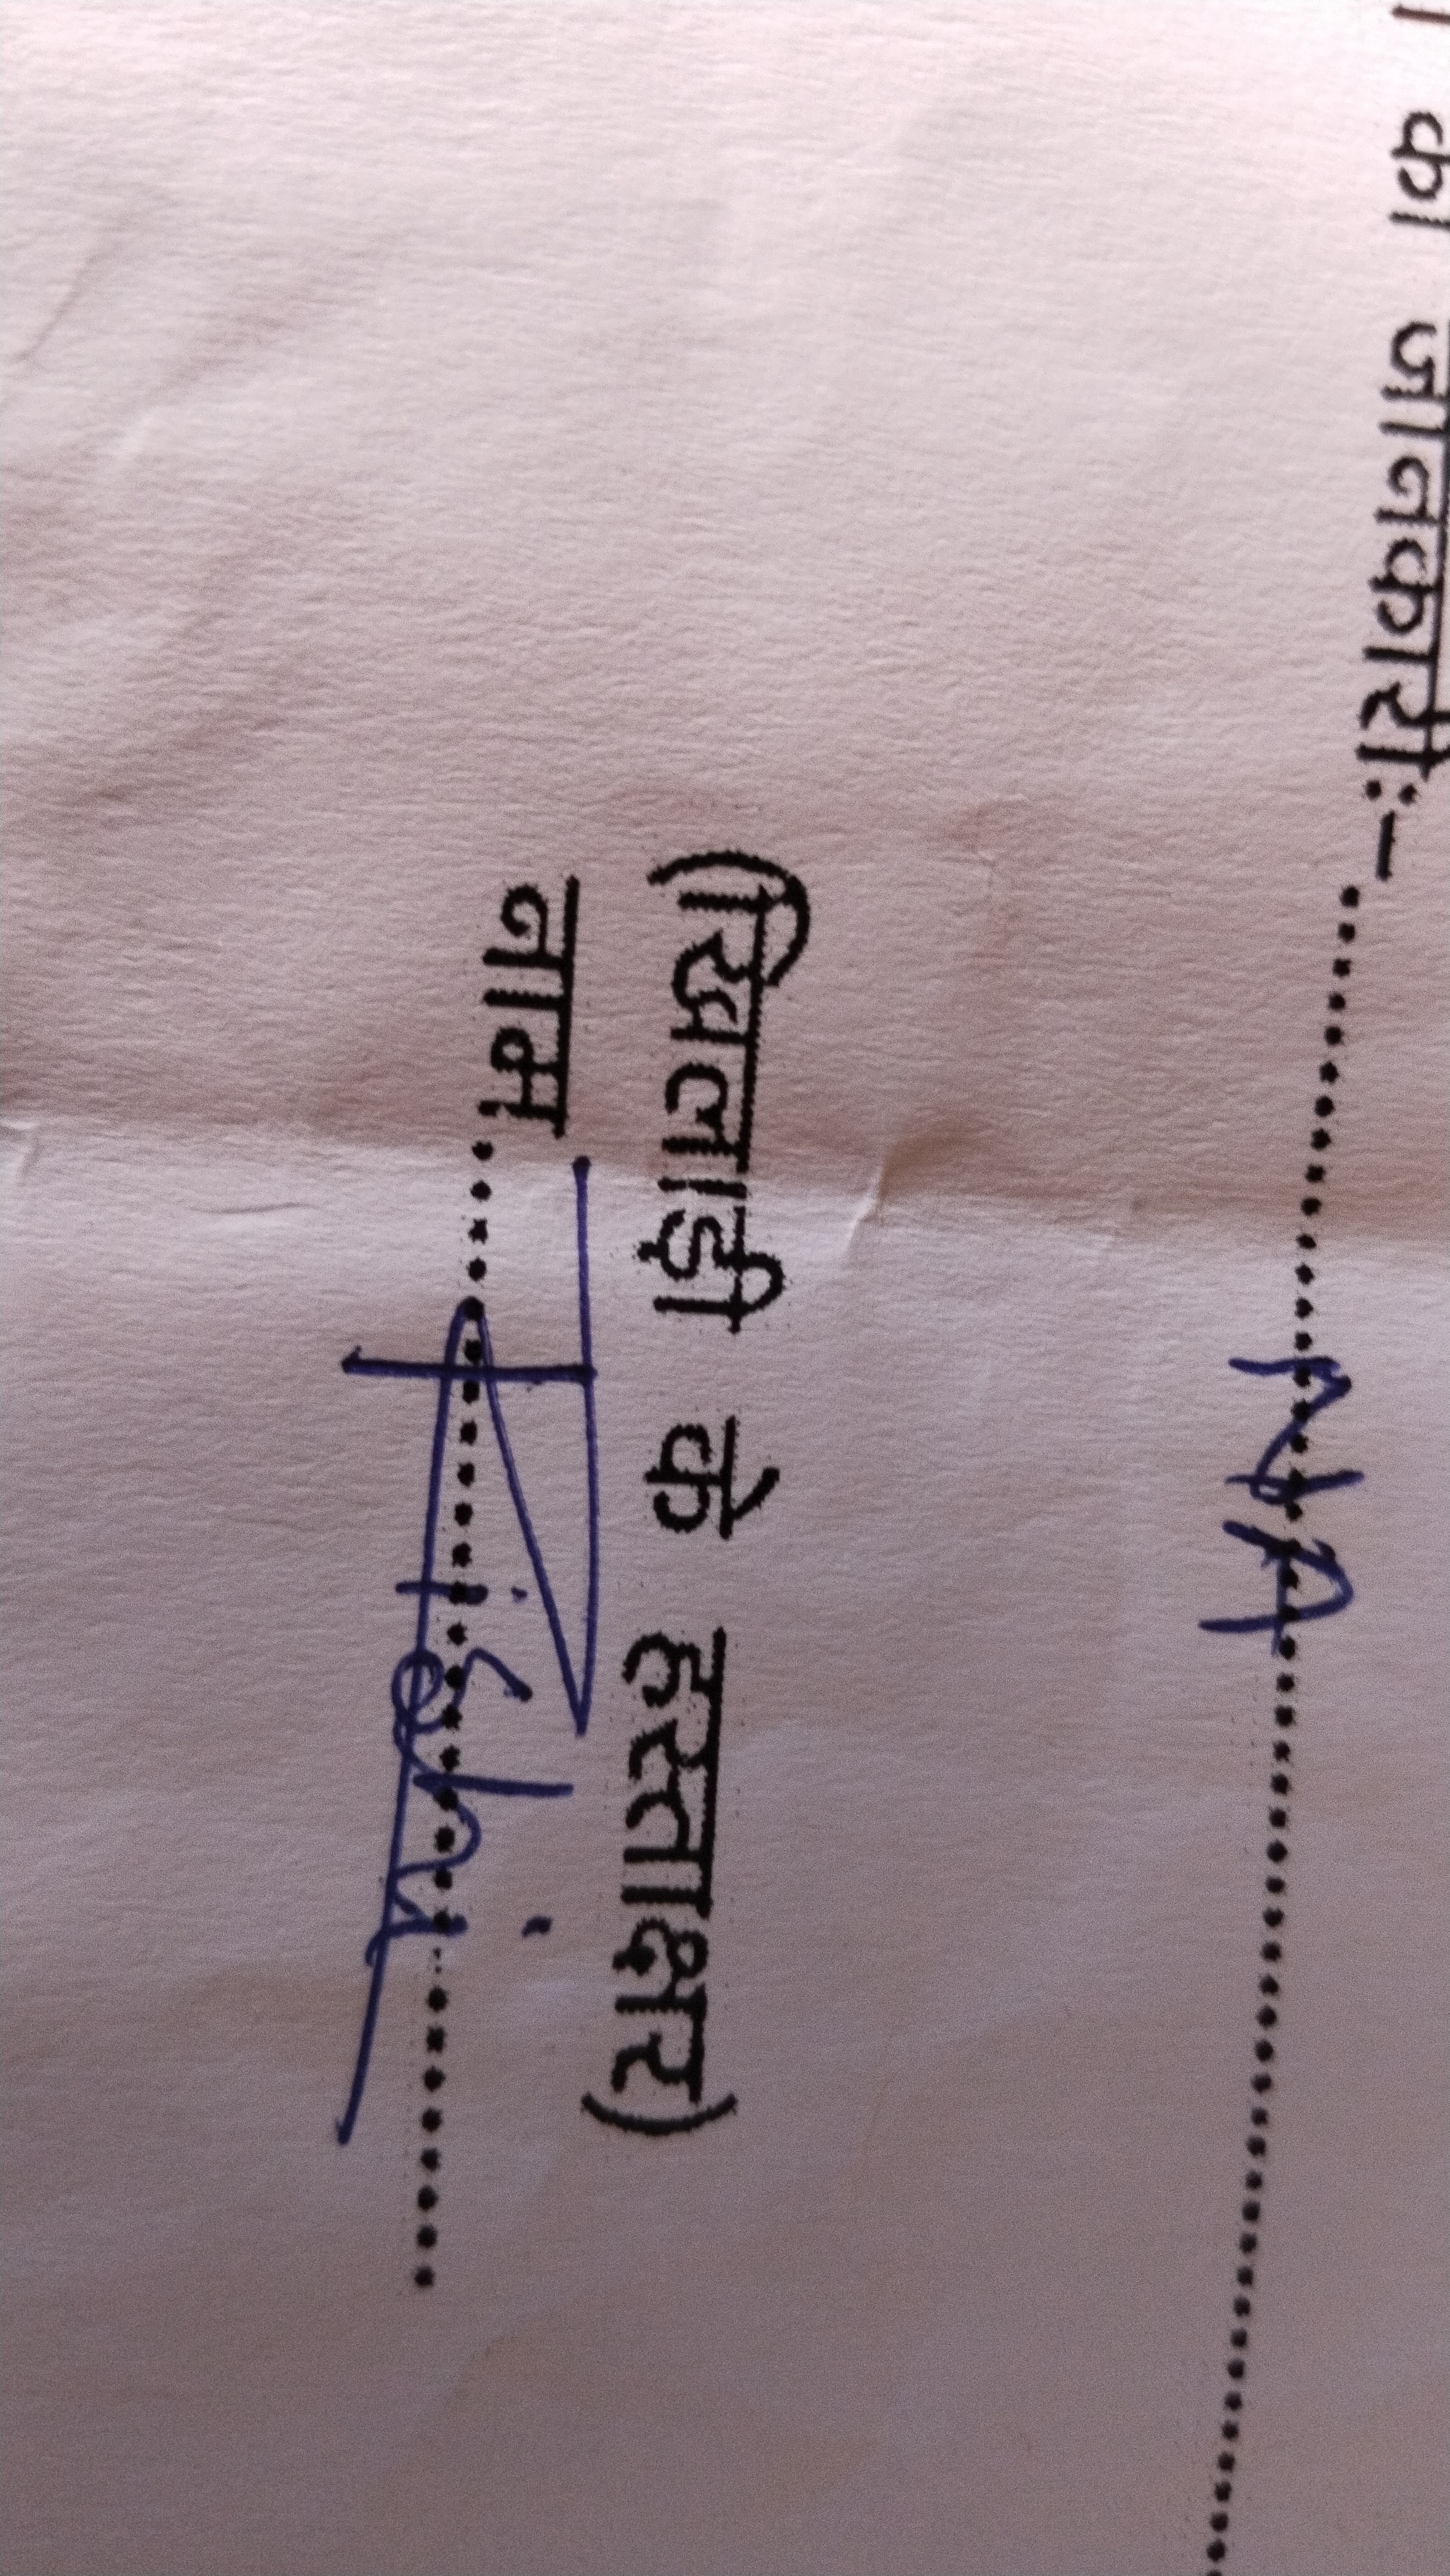 का जानकारी:-..........NA..........
(खिलाड़ी के हस्ताक्षर)
नाम....................